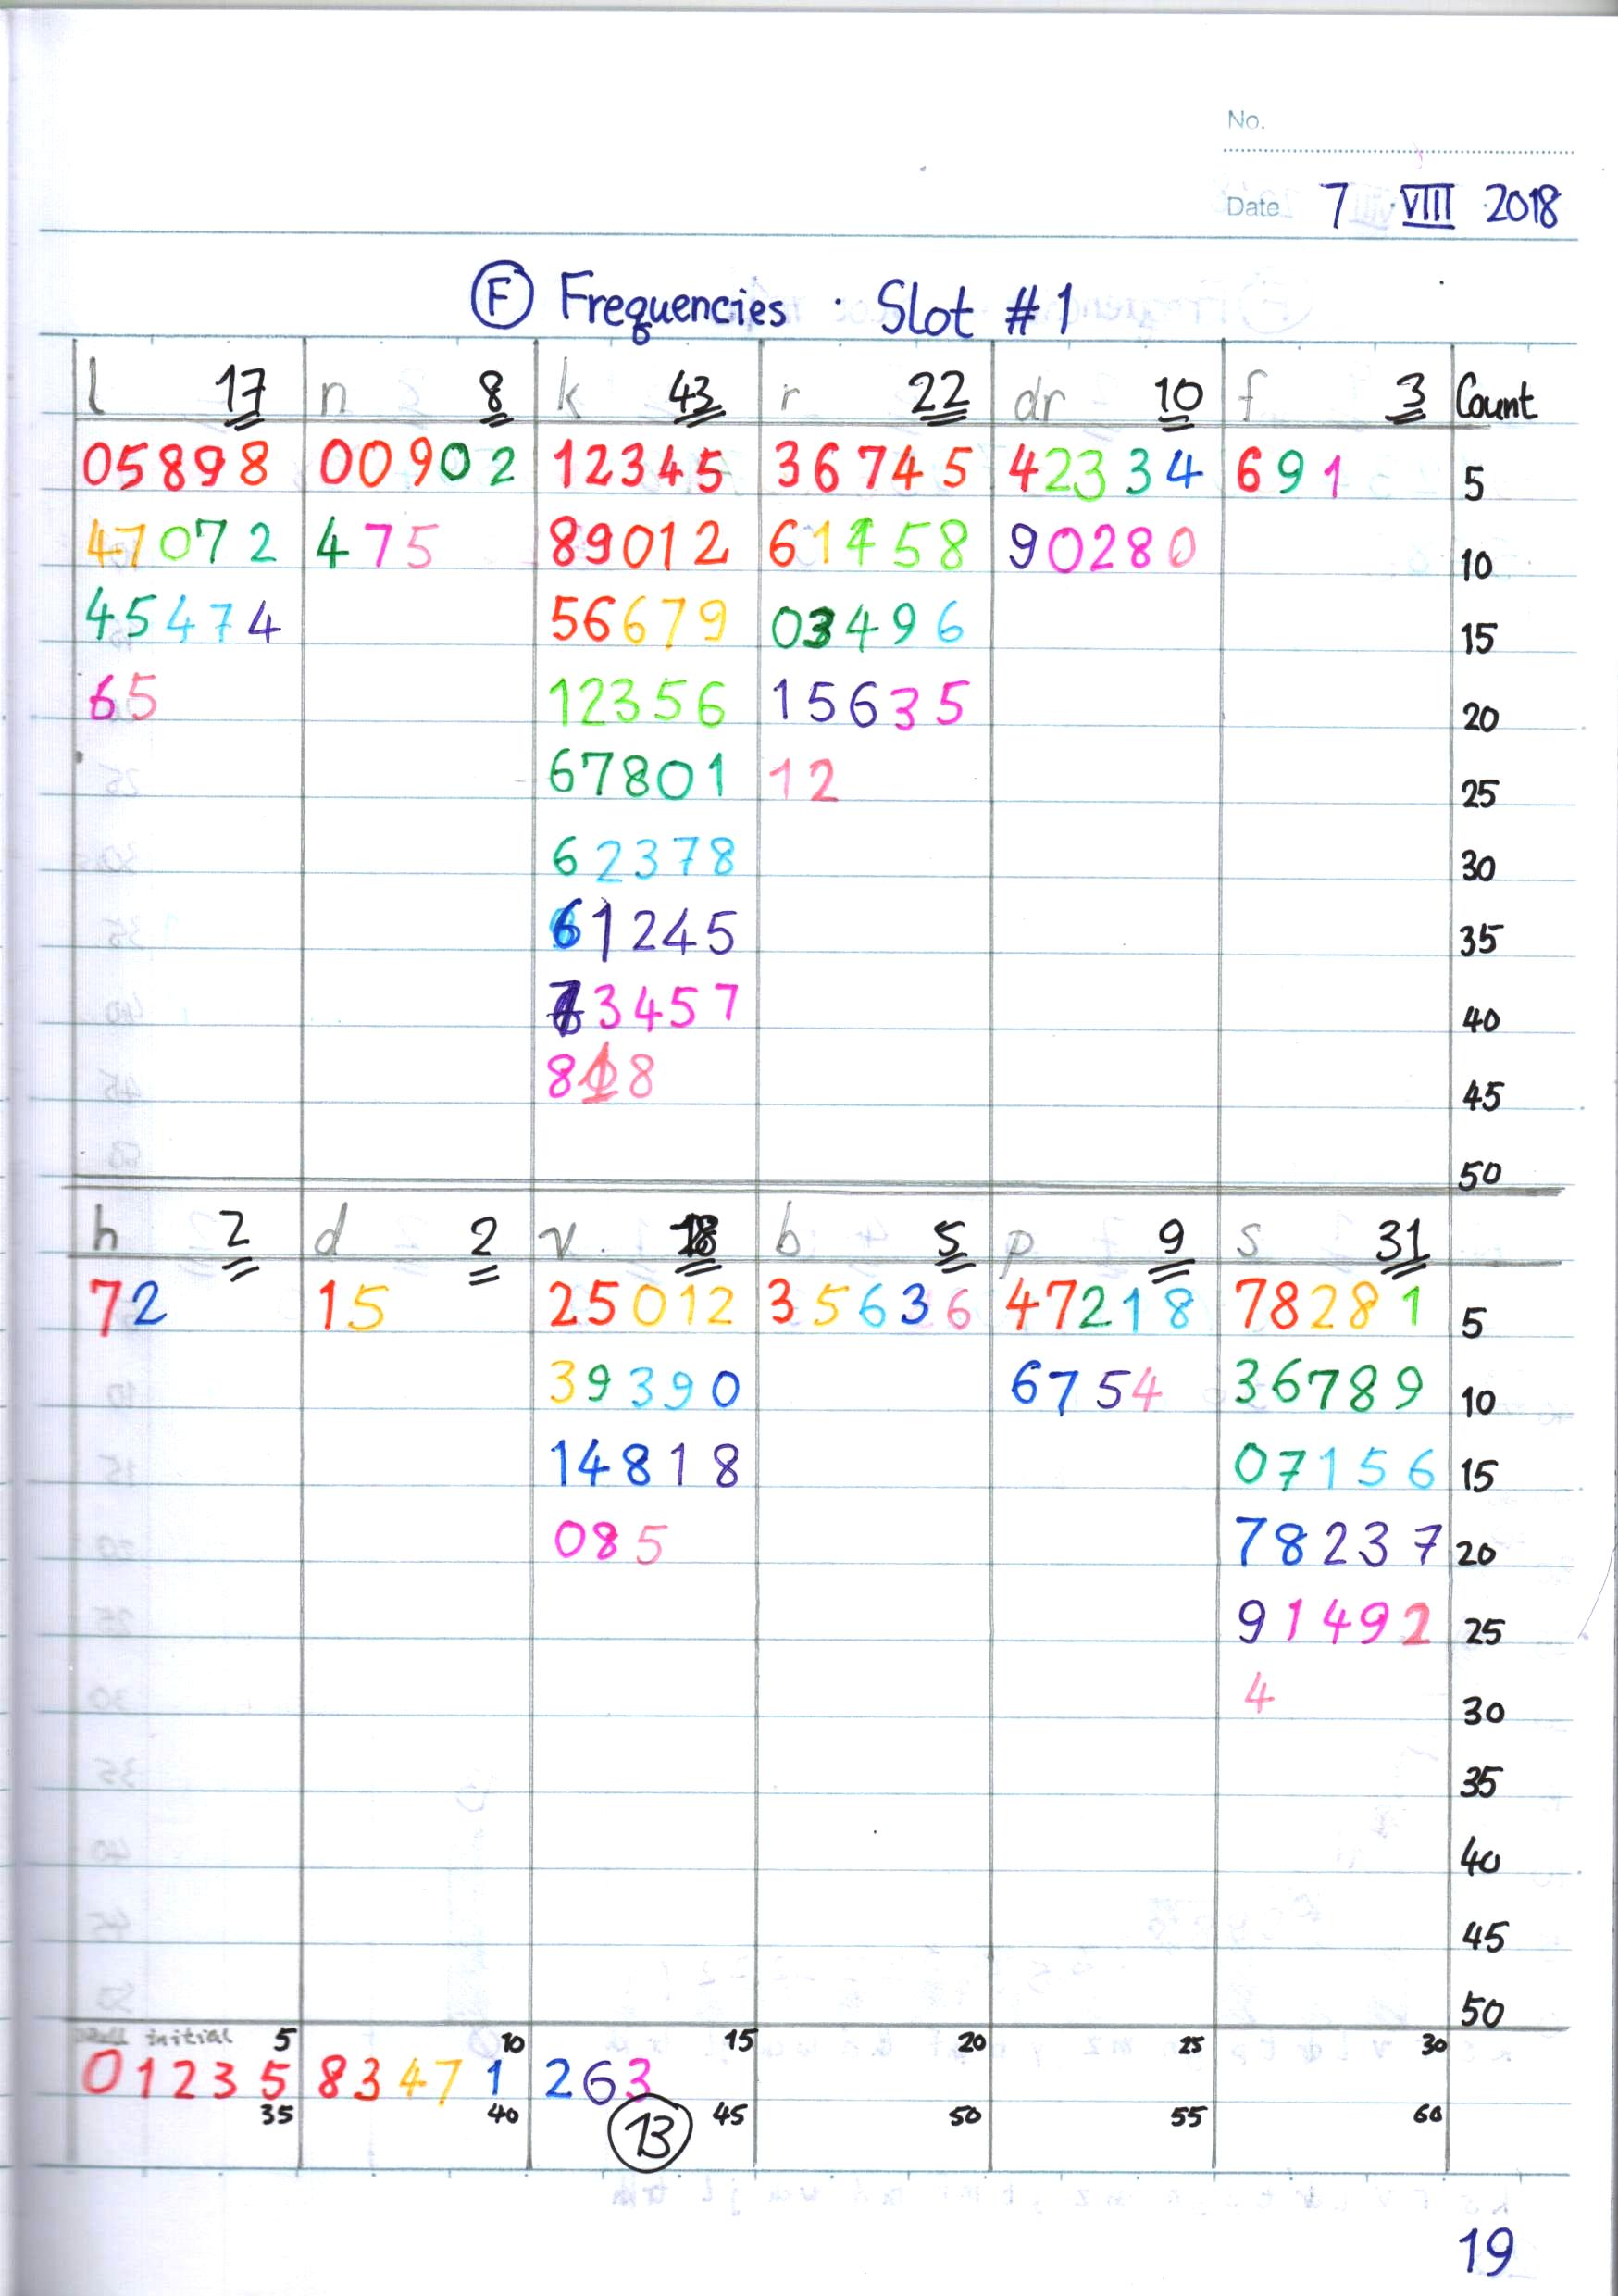 No.
Date 7 · VIII · 2018
F Frequencies · Slot #1
l 17 n 8 k 43 r 22 dr 10 f 3 Count
05898 00902 12345 36745 42334 691 5
47072 475 89012 61458 90280 10
45474 56679 03496 15
65 12356 15635 20
67801 12 25
62378 30
61245 35
73457 40
818 45
50
h 2 d 2 v 18 b 5 p 9 s 31
72 15 25012 35636 47218 78281 5
39390 6754 36789 10
14818 07156 15
085 78237 20
91492 25
4 30
35
40
45
50
initial 5 10 15 20 25 30
01235 83471 263
35 40 13 45 50 55 60
19